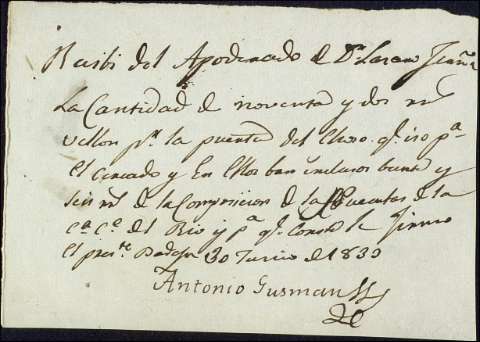 Recibi del Apoderado de Dn Lazaro
La Cantidad de noventa y dos rs
vellon pr la puerta del q. iso pa
el Cercado y En Ellos ban inclusos beinte y
seis rs de la Composicion de la Puertas de la
Ca Ca del Rio y pa q. Conste le firmo
El preste 30 Junio de 1830
Antonio Gusman